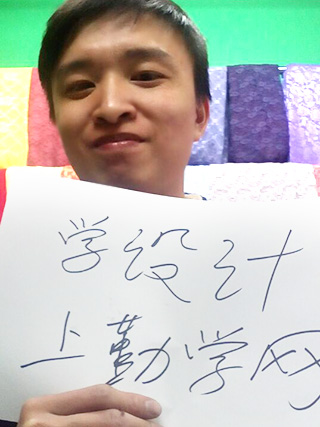 学设计
上勤学网